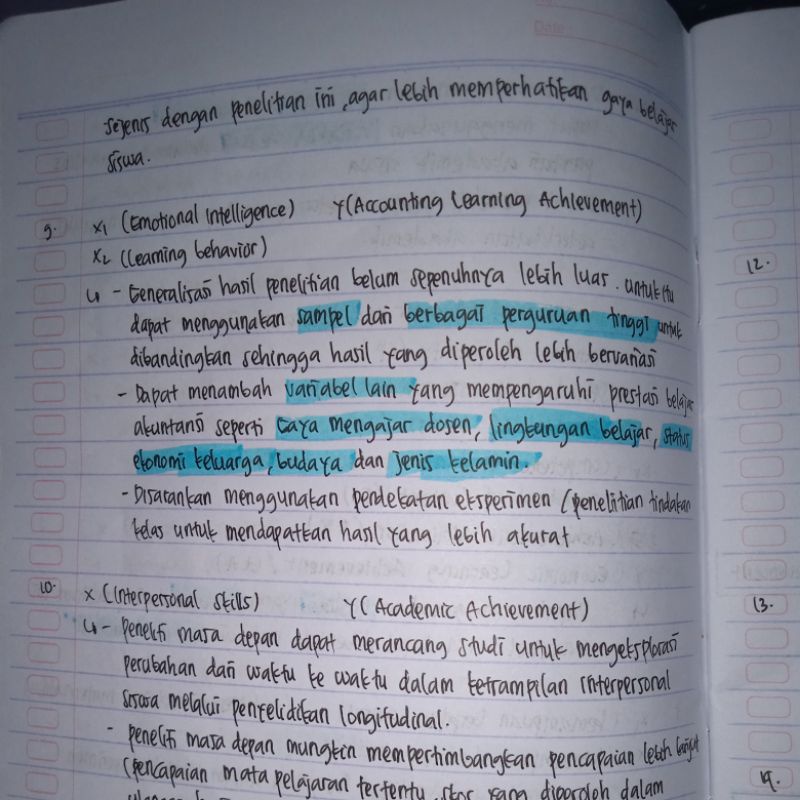 sejenis dengan penelitian ini, agar lebih memperhatikan gaya belajar
siswa.
9. X1 (Emotional Intelligence) Y (Accounting Learning Achievement)
X2 (Learning behavior)
↳ - Generalisasi hasil penelitian belum sepenuhnya lebih luas. untuk itu
dapat menggunakan sampel dari berbagai perguruan tinggi untuk
dibandingkan sehingga hasil yang diperoleh lebih bervariasi
- Dapat menambah variabel lain yang mempengaruhi prestasi belajar
akuntansi seperti Gaya mengajar dosen, lingkungan belajar, status
ekonomi keluarga, budaya dan jenis kelamin.
- Disarankan menggunakan pendekatan eksperimen (penelitian tindakan
kelas untuk mendapatkan hasil yang lebih akurat
10. X (Interpersonal Skills) Y (Academic Achievement)
↳ - peneliti masa depan dapat merancang studi untuk mengeksplorasi
perubahan dari waktu ke waktu dalam ketrampilan interpersonal
siswa melalui penyelidikan longitudinal.
- peneliti masa depan mungkin mempertimbangkan pencapaian lebih lanjut
(pencapaian mata pelajaran tertentu, skor yang diperoleh dalam
12.
13.
14.